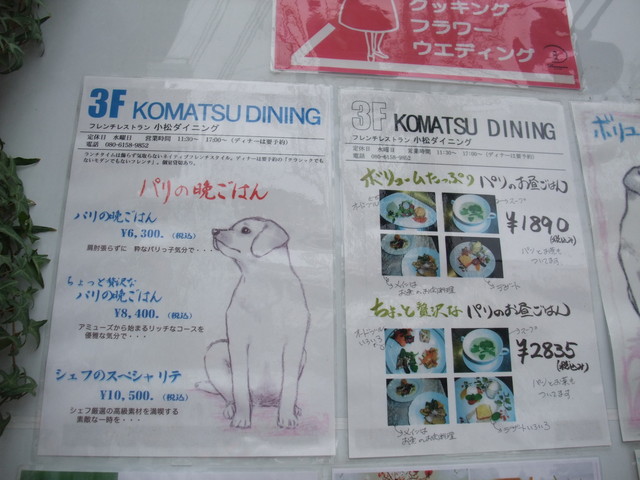 クッキング
フラワー
ウエディング
3F KOMATSU DINING
フレンチレストラン 小松ダイニング
定休日 水曜日 営業時間 11:30~ 17:00~ (ディナーは要予約)
電話 080-6158-9852
パリの晩ごはん
パリの晩ごはん
¥6,300. (税込)
肩肘張らずに 粋なパリっ子気分で・・・
ちょっと贅沢な
パリの晩ごはん
¥8,400. (税込)
アミューズから始まるリッチなコースを
優雅な気分で・・・
シェフのスペシャリテ
¥10,500. (税込)
シェフ厳選の高級素材を満喫する
素敵な一時を・・・
3F KOMATSU DINING
フレンチレストラン 小松ダイニング
定休日 水曜日 営業時間 11:30~ 17:00~ (ディナーは要予約)
電話 080-6158-9852
ボリュームたっぷり パリのお昼ごはん
¥1890
(税込み)
パンとお茶も
つきます
メインは
お魚のお料理
デザート
ちょっと贅沢な パリのお昼ごはん
¥2835
(税込み)
パンとお茶も
つきます
メインは
お魚のお肉料理
デザートいろいろ
ボリュ